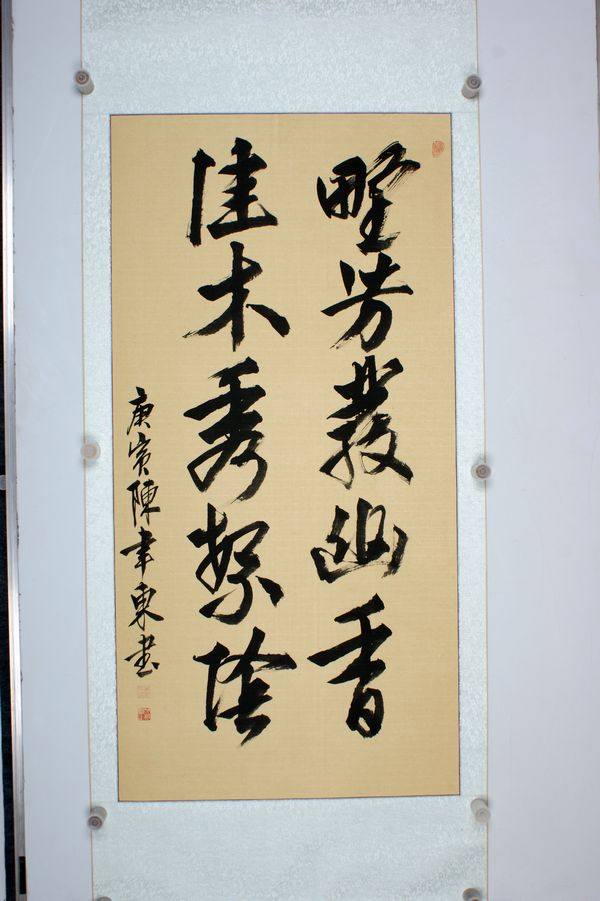 野芳發幽香
佳木秀繁陰
庚寅陳韋東書